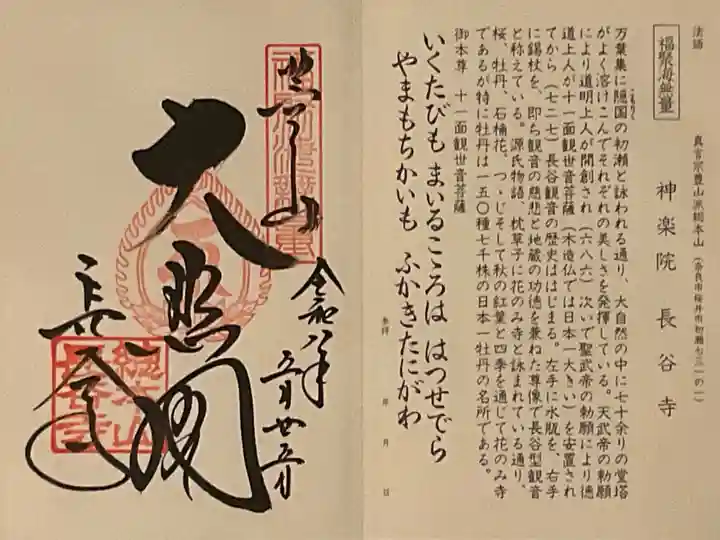 法語
福聚海無量
真言宗豊山派総本山
(奈良市桜井市初瀬七三一の一)
神楽院 長谷寺
万葉集に隠国の初瀬と詠われる通り、大自然の中に七十余りの堂塔
こもりく
がよく溶けこんでそれぞれの美しさを発揮している。天武帝の勅願
により道明上人が開創され(六八六)次いで聖武帝の勅願により徳
道上人が十一面観世音菩薩(木造仏では日本一大きい)を安置され
てから(七二七)長谷観音の歴史ははじまる。左手に水瓶を、右手
に錫杖を、即ち観音の慈悲と地蔵の功徳を兼ねた尊像で長谷型観音
と称えている。源氏物語、枕草子に花のみ寺と詠まれている通り、
桜、牡丹、石楠花、つゝじそして秋の紅葉と四季を通じて花のみ寺
であるが特に牡丹は一五〇種七千株の日本一牡丹の名所である。
御本尊 十一面観世音菩薩
いくたびも まいるこころは はつせでら
やまもちかいも ふかきたにがわ
年 月 日
令和八年
五月廿五日
大悲閣